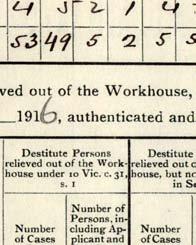 4 5 2 1 4
53 49 5 2 5
ved out of the Workhouse,
1916, authenticated and
Destitute Persons
relieved out of the Work-
house under 10 Vic. c. 31,
s. 1
Destitute
relieved out o
house, but no
in Se
Number
of Cases
Number of
Persons, in-
cluding Ap-
plicant and
Number
of Cases